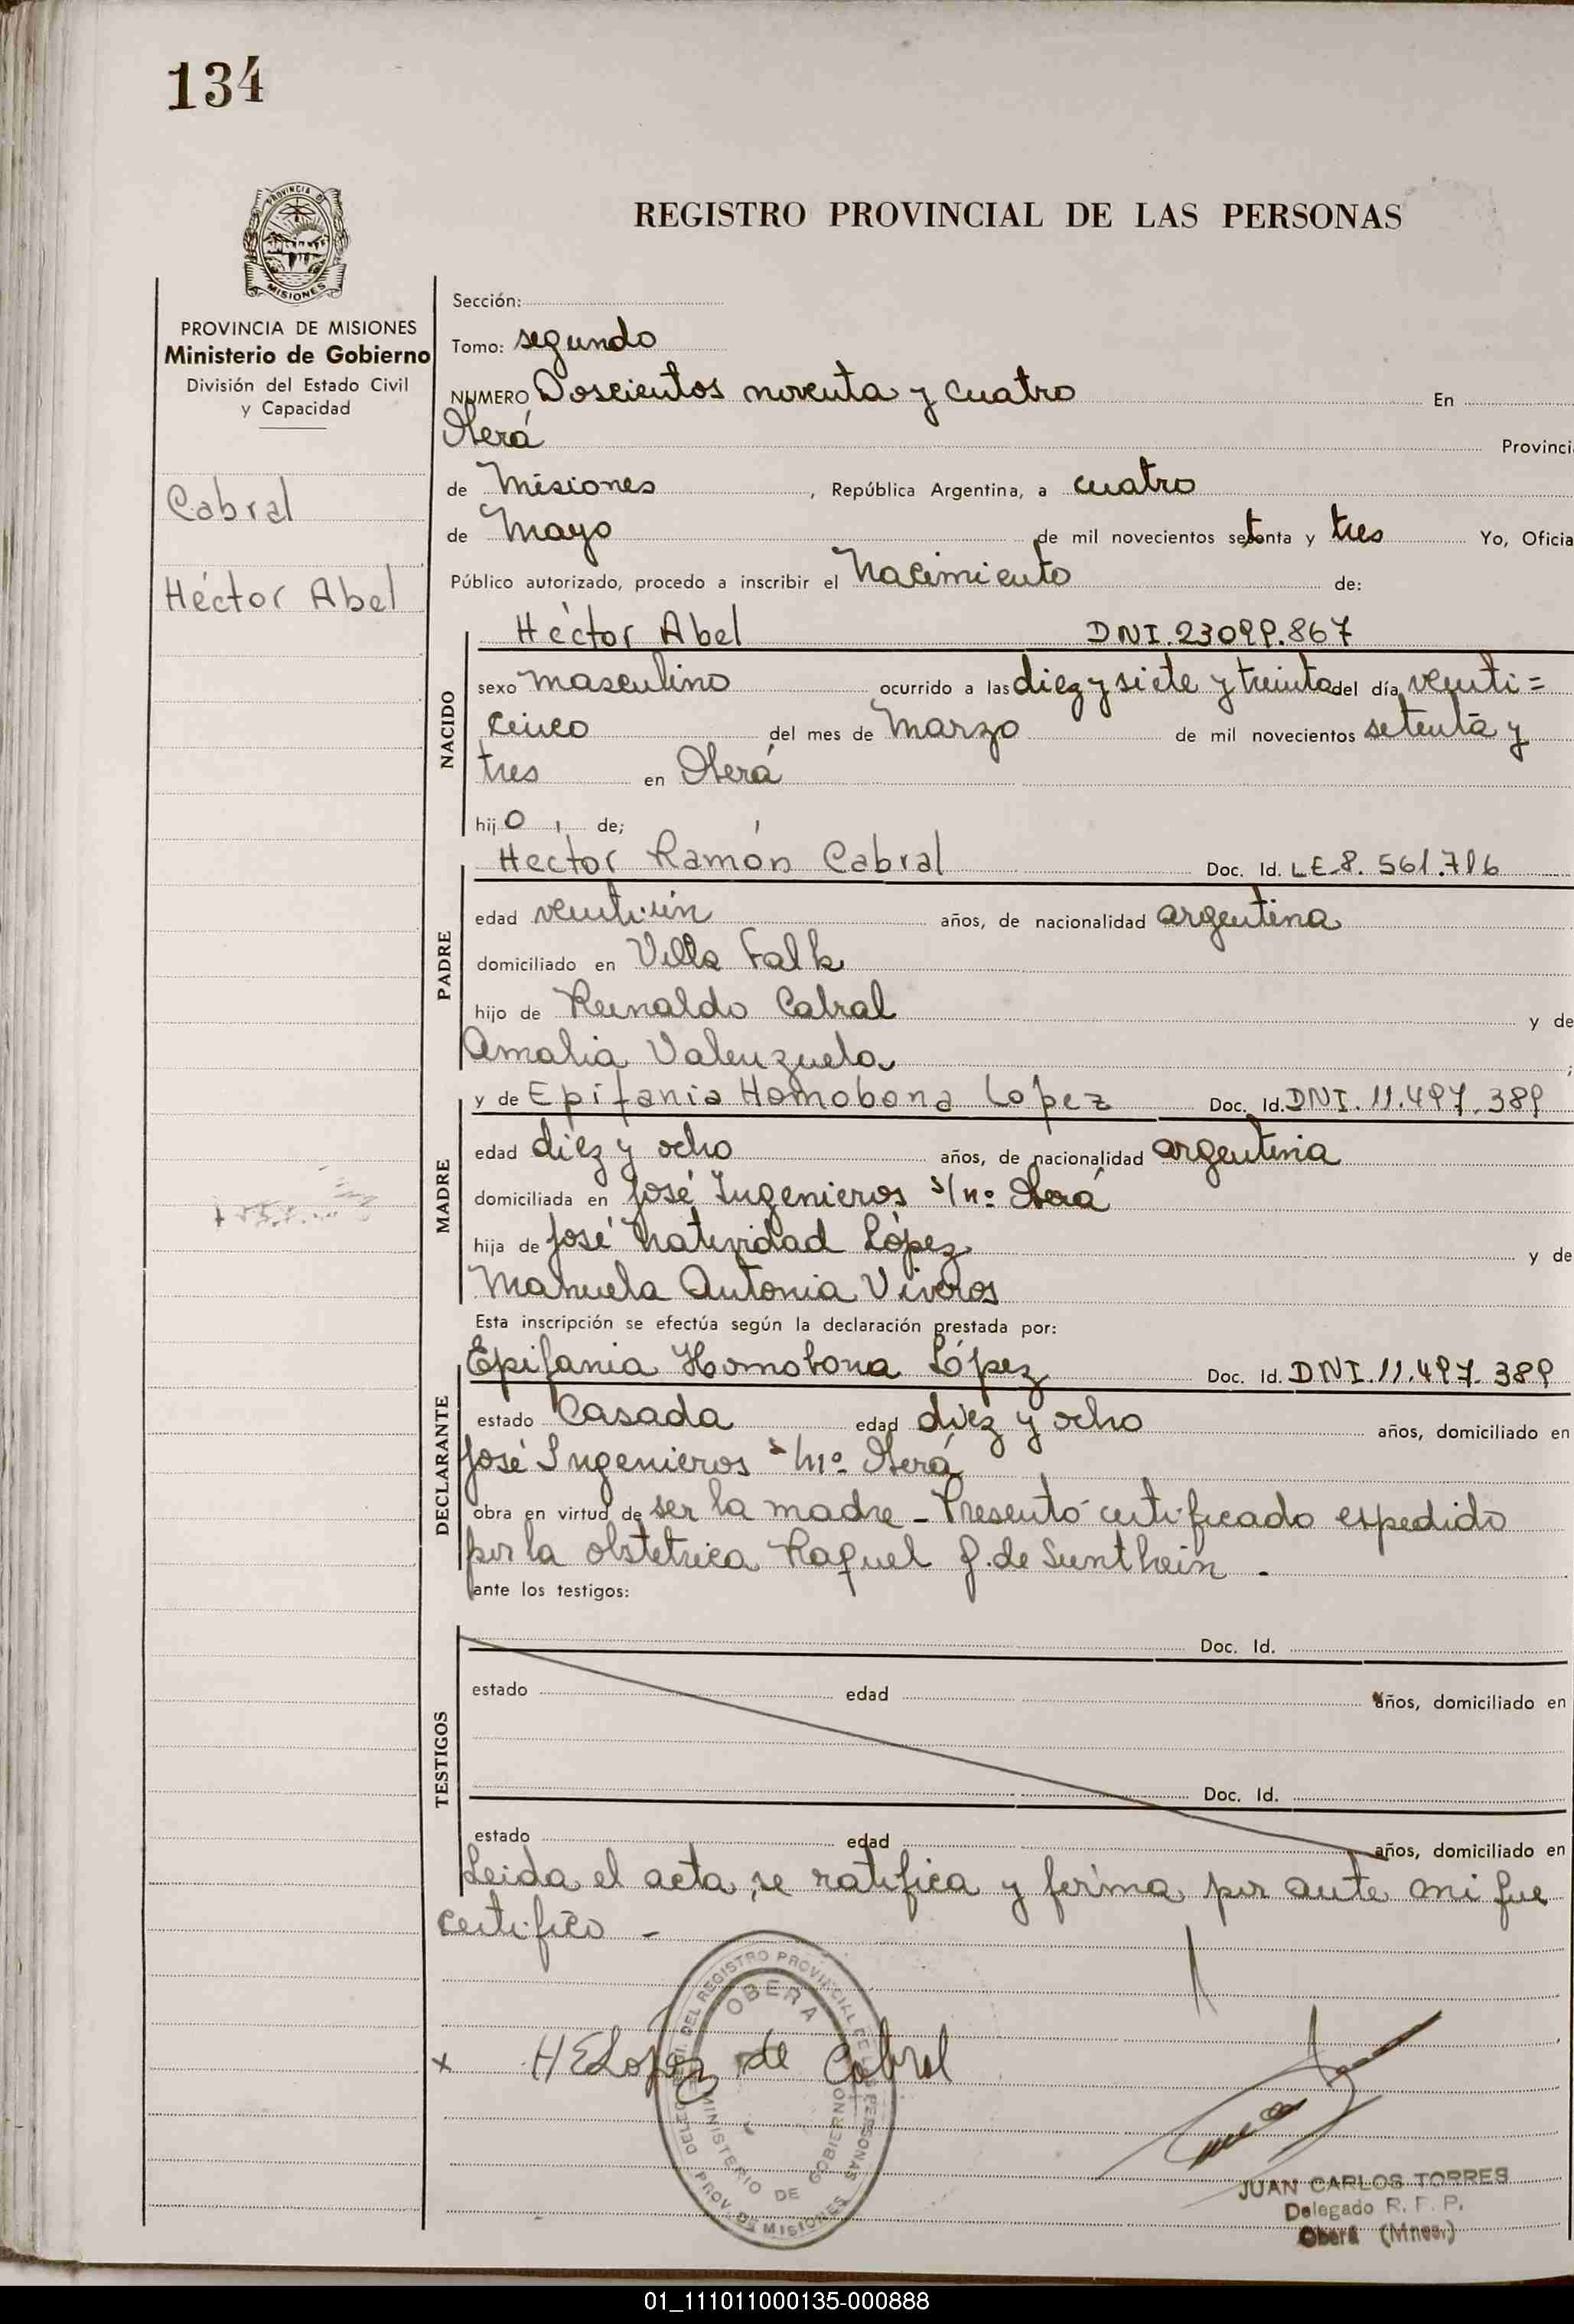 134
REGISTRO PROVINCIAL DE LAS PERSONAS
PROVINCIA DE
MISIONES
PROVINCIA DE MISIONES
Ministerio de Gobierno
División del Estado Civil
y Capacidad
Cabral
Héctor Abel
Sección:
Tomo: segundo
NUMERO Doscientos noventa y cuatro En
Oberá Provinci
de Misiones , República Argentina, a cuatro
de Mayo de mil novecientos setenta y tres Yo, Oficia
Público autorizado, procedo a inscribir el Nacimiento de:
NACIDO
Héctor Abel DNI.23099.867
sexo masculino ocurrido a las diez y siete y treinta del día venti=
cinco del mes de Marzo de mil novecientos setenta y
tres en Oberá
hijo de;
PADRE
Hector Ramón Cabral Doc. Id. LE.8.561.716
edad ventiún años, de nacionalidad argentina
domiciliado en Villa Falk
hijo de Reinaldo Cabral y de
Amalia Valenzuela ;
MADRE
y de Epifania Homobona López Doc. Id. DNI.11.497.389
edad diez y ocho años, de nacionalidad argentina
domiciliada en José Ingenieros s/nº Oberá
hija de José Natividad López y de
Manuela Antonia Viveros
Esta inscripción se efectúa según la declaración prestada por:
DECLARANTE
Epifania Homobona López Doc. Id. DNI.11.497.389
estado Casada edad diez y ocho años, domiciliado en
José Ingenieros s/nº Oberá
obra en virtud de ser la madre - Presentó certificado expedido
por la obstetrica Raquel G. de Sunthein.
ante los testigos:
TESTIGOS
Doc. Id.
estado edad años, domiciliado en
Doc. Id.
estado edad años, domiciliado en
Leida el acta, se ratifica y firma por ante mi que
certifico -
x HELopez de Cabral
DEL REGISTRO PROVINCIAL DE LAS PERSONAS
OBERA
MINISTERIO DE GOBIERNO
PROV. DE MISIONES
JUAN CARLOS TORRES
Delegado R. P. P.
Oberá (Mnes.)
01_111011000135-000888